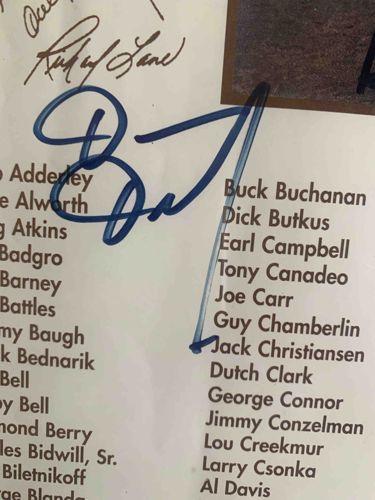 Richard Lane
Adderley
e Alworth
g Atkins
Badgro
Barney
Battles
my Baugh
k Bednarik
Bell
y Bell
mond Berry
les Bidwill, Sr.
Biletnikoff
rge Blanda
Buck Buchanan
Dick Butkus
Earl Campbell
Tony Canadeo
Joe Carr
Guy Chamberlin
Jack Christiansen
Dutch Clark
George Connor
Jimmy Conzelman
Lou Creekmur
Larry Csonka
Al Davis